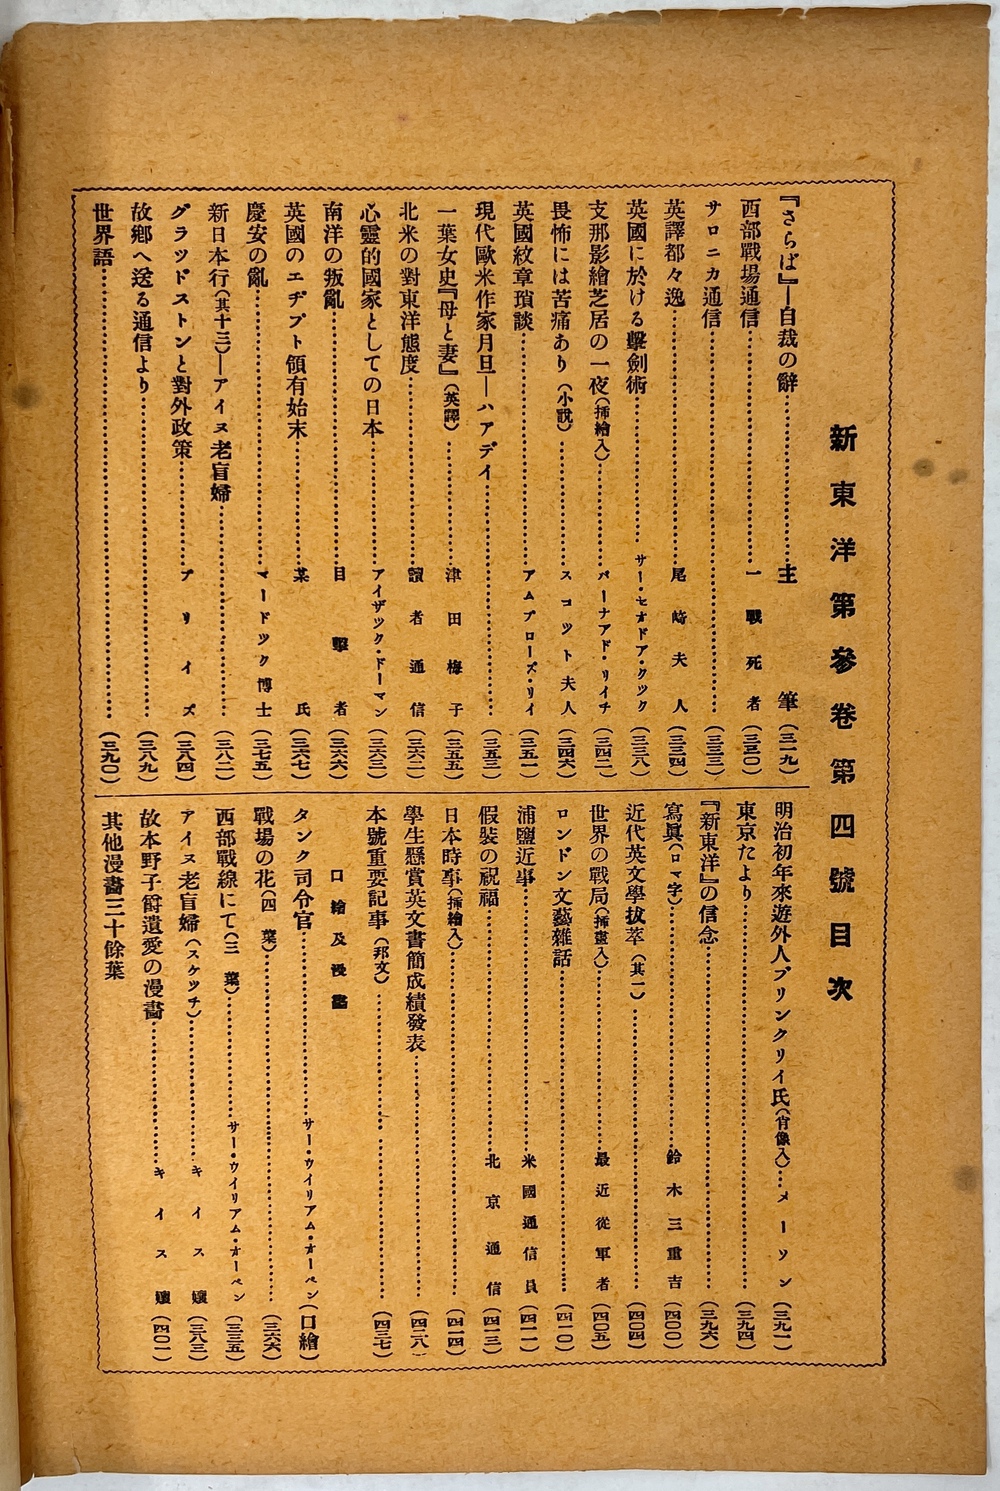 新東洋第參卷第四號目次
『さらば』―自裁の辭……主筆（三一九）
西部戰場通信……一戰死者（三三〇）
サロニカ通信……（三三三）
英譯都々逸……尾崎夫人（三三四）
英國に於ける擊劍術……サー・セオドア・クツク（三三八）
支那影繪芝居の一夜（揷繪入）……バーナアド・リイチ（三四二）
畏怖には苦痛あり（小說）……スコツト夫人（三四六）
英國紋章瑣談……アムブローズ・リイ（三五一）
現代歐米作家月旦―ハアデイ……（三五三）
一葉女史『母と妻』（英譯）……津田梅子（三五五）
北米の對東洋態度……讀者通信（三六二）
心靈的國家としての日本……アイザツク・ドーマン（三六三）
南洋の叛亂……目擊者（三六六）
英國のエヂプト領有始末……某氏（三六七）
慶安の亂……マードツク博士（三七五）
新日本行（其十三）―アイヌ老盲婦……（三八二）
グラツドストンと對外政策……ブリイズ（三八四）
故鄕へ送る通信より……（三八九）
世界語……（三九〇）
明治初年來遊外人ブリンクリイ氏（肖像入）…メーソン（三九一）
東京たより……（三九四）
『新東洋』の信念……（三九六）
寫眞（ロマ字）……鈴木三重吉（四〇〇）
近代英文學拔萃（其一）……（四〇四）
世界の戰局（揷畫入）……最近從軍者（四〇五）
ロンドン文藝雜話……（四一〇）
浦鹽近事……米國通信員（四一一）
假裝の祝福……北京通信（四一三）
日本時事（揷繪入）……（四一四）
學生懸賞英文書簡成績發表……（四二八）
本號重要記事（邦文）……（四三七）
口繪及漫畵
タンク司令官……サー・ウイリアム・オーペン（口繪）
戰場の花（四葉）……（三六六）
西部戰線にて（三葉）……サー・ウイリアム・オーペン（三三五）
アイヌ老盲婦（スケツチ）……キイス孃（三八三）
故本野子爵遺愛の漫畵……キイス孃（四〇一）
其他漫畵三十餘葉